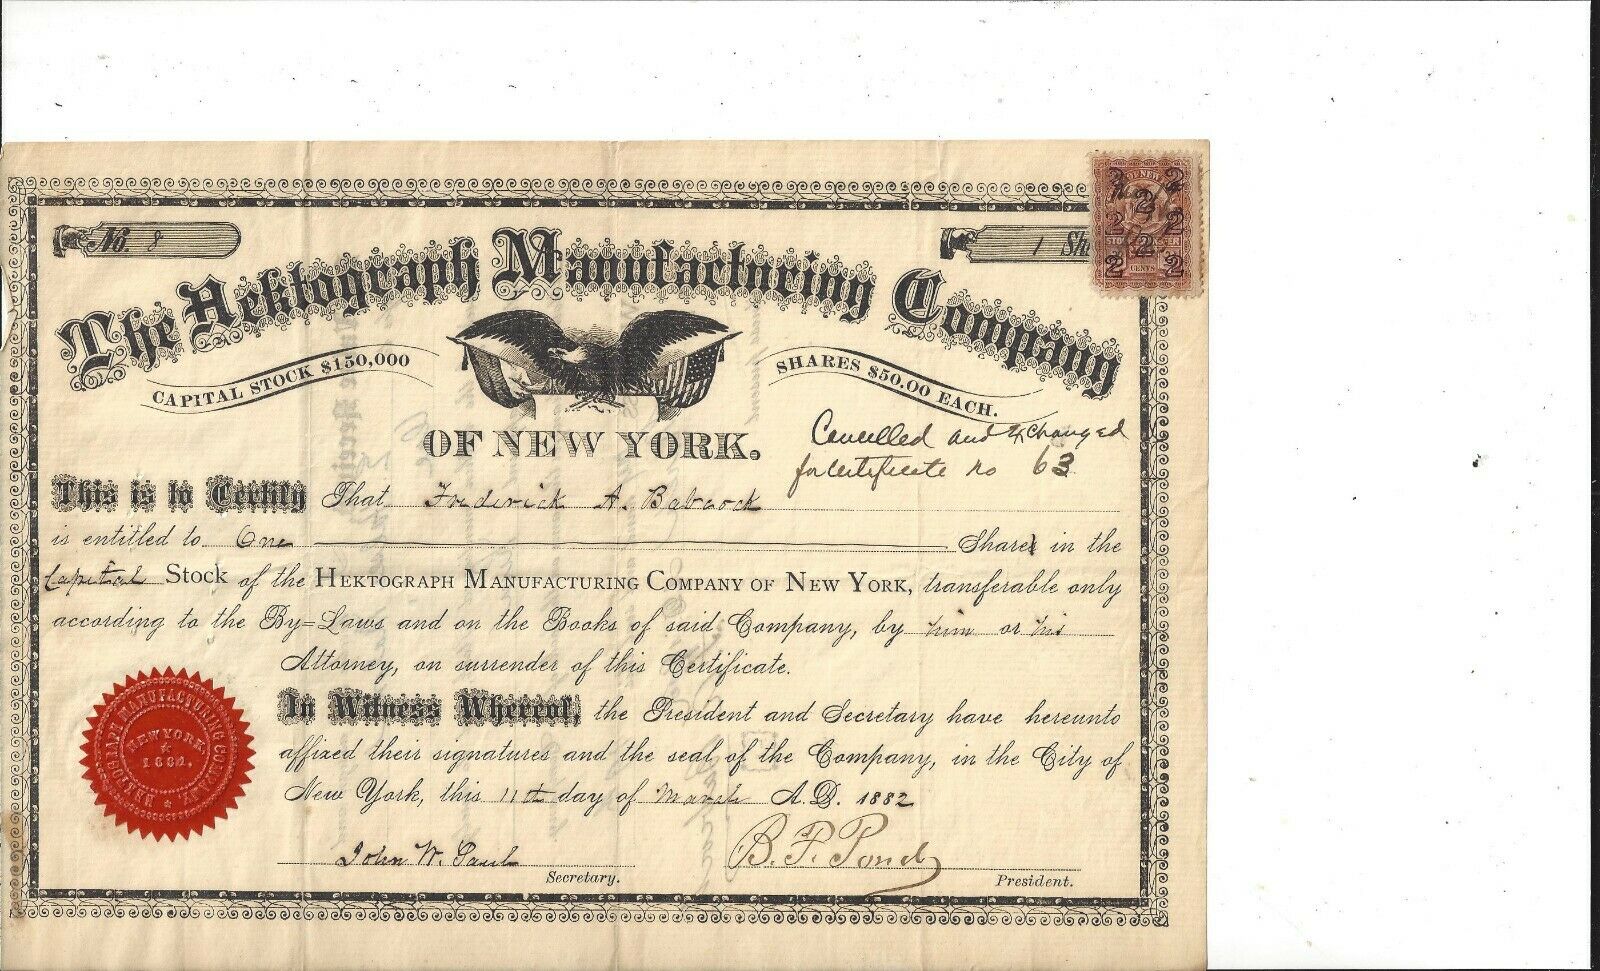 No. 8
1 Sh
The Hektograph Manufacturing Company
CAPITAL STOCK $150,000
SHARES $50.00 EACH.
OF NEW YORK.
Cancelled and Exchanged
for certificate no 63
This is to Certify That Frederick A. Babcock
is entitled to One Share in the
Capital Stock of the HEKTOGRAPH MANUFACTURING COMPANY OF NEW YORK, transferable only
according to the By=Laws and on the Books of said Company, by him or his
Attorney, on surrender of this Certificate.
In Witness Whereof, the President and Secretary have hereunto
affixed their signatures and the seal of the Company, in the City of
New York, this 11th day of March A.D. 1882
John W. Paul
Secretary.
B. F. Pond
President.
HEKTOGRAPH MANUFACTURING COMPANY
NEW YORK
OF NEW
2 2 2
2 2
STOCK
2
2 2
CENTS